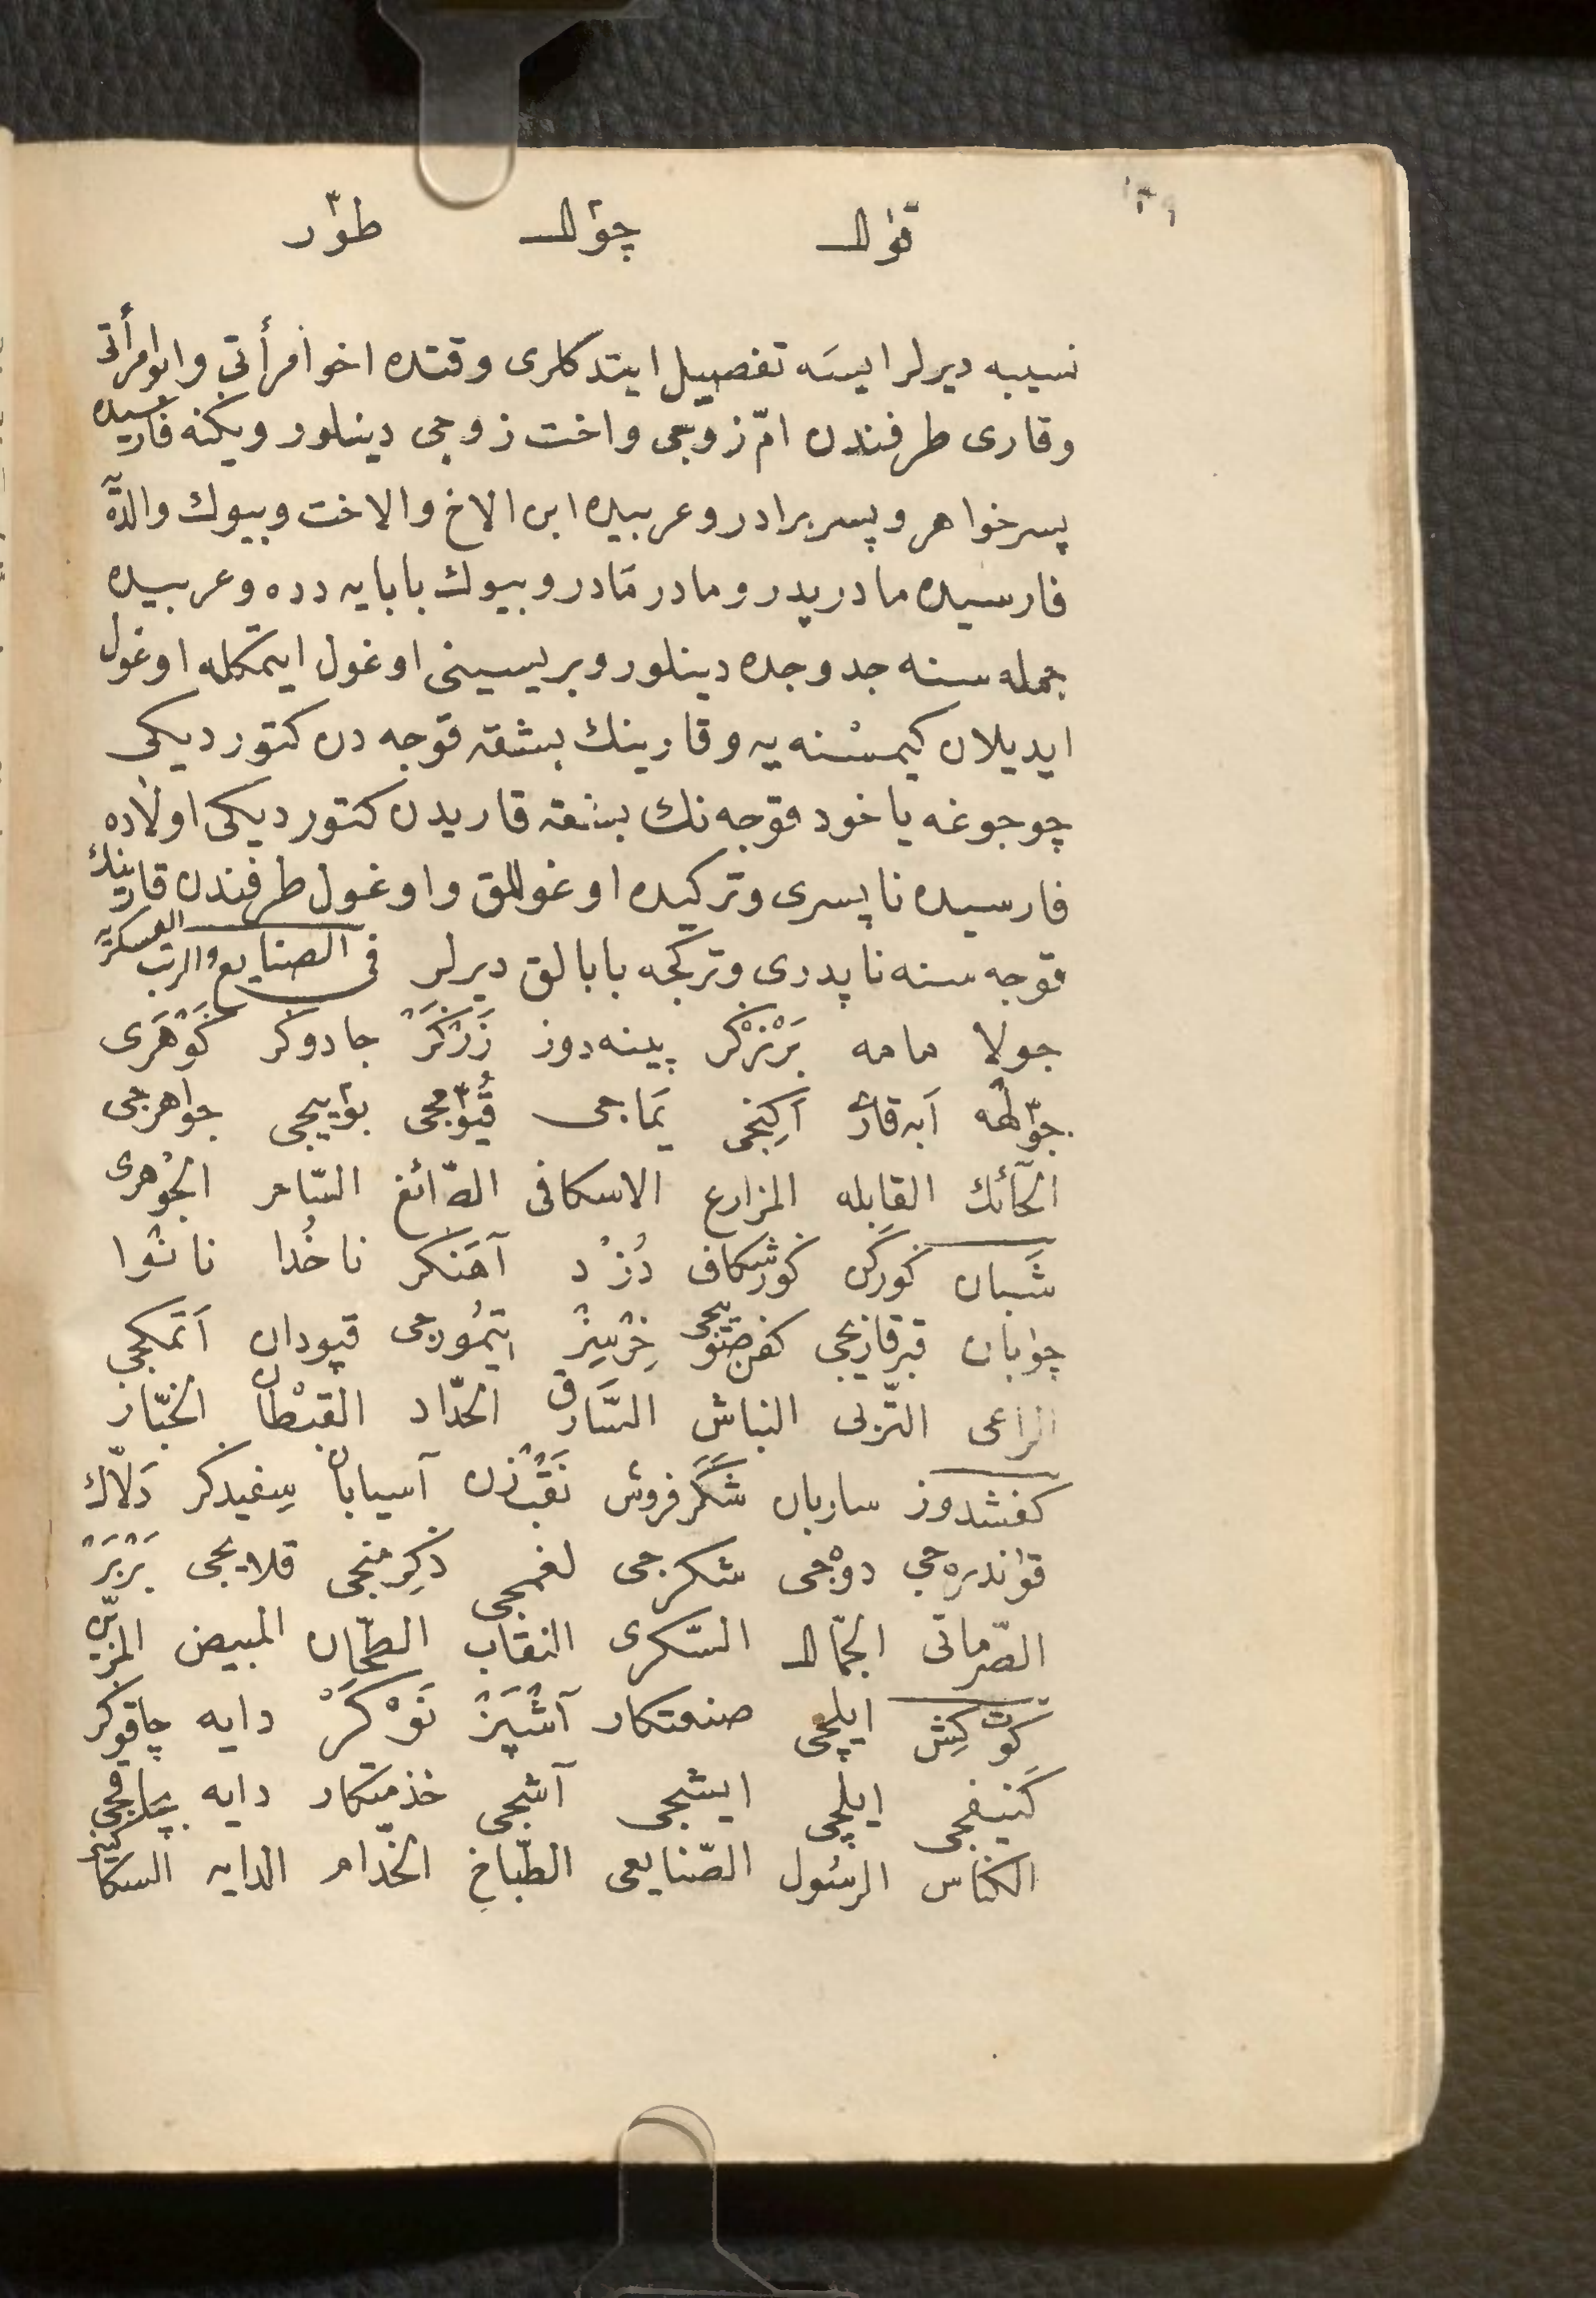 ١٣٩
قۉالـ چۉالـ طوّر
نسیبه دیرلر ایسَه تفصیل ایتدکلری وقتده اخو أمرأتی وابو امرأتی
وقاری طرفندن امّ زوجی واخت زوجی دینلور ویکنه فارسیده
پسر خواهر و پسر برادر وعربیده ابن الاخ والاخت وبیوك والدّه
فارسیده مادر پدر ومادر مَادر وبیوك بابایه دده وعربیده
جمله سنه جد وجده دینلور وبریسینی اوغول ایتمکله اوغول
ایدیلان کیمسْنه یه وقارینك بشقه قوجه دن کتوردیکی
چوجوغه یاخود قوجه نك بشقه قاریدن کتوردیکی اولاده
فارسیده ناپسری وترکیده اوغوللق واوغول طرفندن قارینك
قوجه سنه ناپدری وترکجه بابالق دیرلر فی الصنایع والرتب العسکریّه
جولا مامه بَرْزکر پینه دوز زَرْکَرْ جادوکر کَوْهَری
جوّلهه اَبه قارۍ اَکِنْجی یَماجی قُیوّمجی بؤییجی جواهرجی
الحآئك القابله المزارع الاسکافی الصّائغ السّاحر الجوْهری
شَبان کورکَن کورشکاف دُزْد آهَنکر ناخُدا نانْوا
چوْبان قبرقازیجی کفن صویْیجی خِرْسِزْ اتیمُورجی قپودان اَتمکجی
الراعی التّربی النباش السَّارق الحدّاد القبْطان الخبّاز
کفشدوز ساربان شکّرفروش نَقْبزن آسیابان سِفیدکر دَلّاك
قۉندره جی دوه جی شکرجی لغمجی دَکِرمنجی قلایجی بَرْبَرْ
الصّرماتی الجمّالـ السّکری النقاب الطحّان المبیض المزیّن
کوت کِش ایلچی صنعتکار آشْپَزْ نَوْکَرْ دایه چاقوکر
کَنیفجی ایلچی ایشجی آشجی خذمتکار دایه چاقجی
الکنّاس الرسُول الصّنایعی الطّباخ الخدّام الدایه السکاکینی